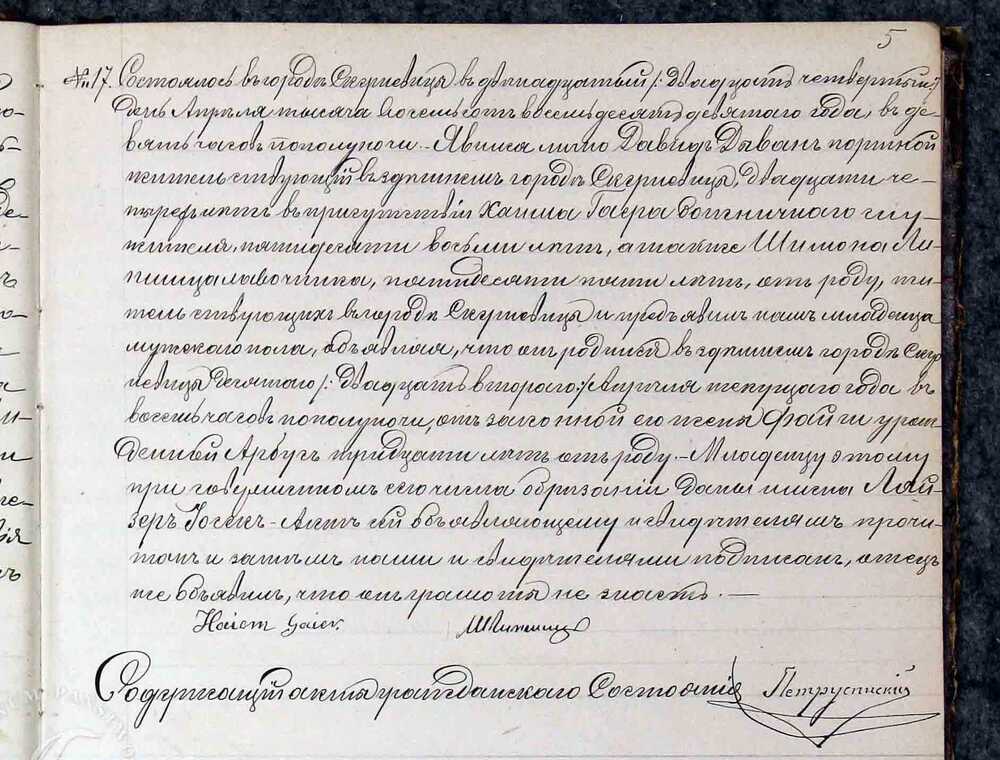 5
№ 17. Состоялось въ городѣ Скерневицѣ въ двѣнадцатый /: двадцать четвертый:/
день Апрѣля тысяча восемьсотъ восемьдесятъ девятаго года, въ де-
вять часовъ пополуночи. - Явился лично Давидъ Дыванъ портной
жительствующій въ здѣшнемъ городѣ Скерневицѣ, двадцати че-
тырехъ лѣтъ въ присутствіи Хаима Гаера больничнаго слу-
жителя, пятидесяти восьми лѣтъ, а также Шимона Ли-
пшица лавочника, пятидесяти пяти лѣтъ, отъ роду, жи-
тельствующихъ въ городѣ Скерневицѣ и предъявилъ намъ младенца
мужескаго пола, объявляя, что онъ родился въ здѣшнемъ городѣ Скер
невицѣ десятаго /: двадцать втораго:/ Апрѣля текущаго года въ
восемь часовъ пополуночи, отъ законной его жены Файги урож
денной Арбузъ тридцати лѣтъ отъ роду. - Младенцу этому
при совершенномъ сего числа обрѣзаніи даны имена Лай-
зеръ Іосекъ - Актъ сей объявляющему и свидѣтелямъ прочи-
танъ и затѣмъ нами и свидѣтелями подписанъ, отецъ
же объявилъ, что онъ грамоты не знаетъ. —
Haiem Gaier.
Содержащій акты гражданскаго Состоянія